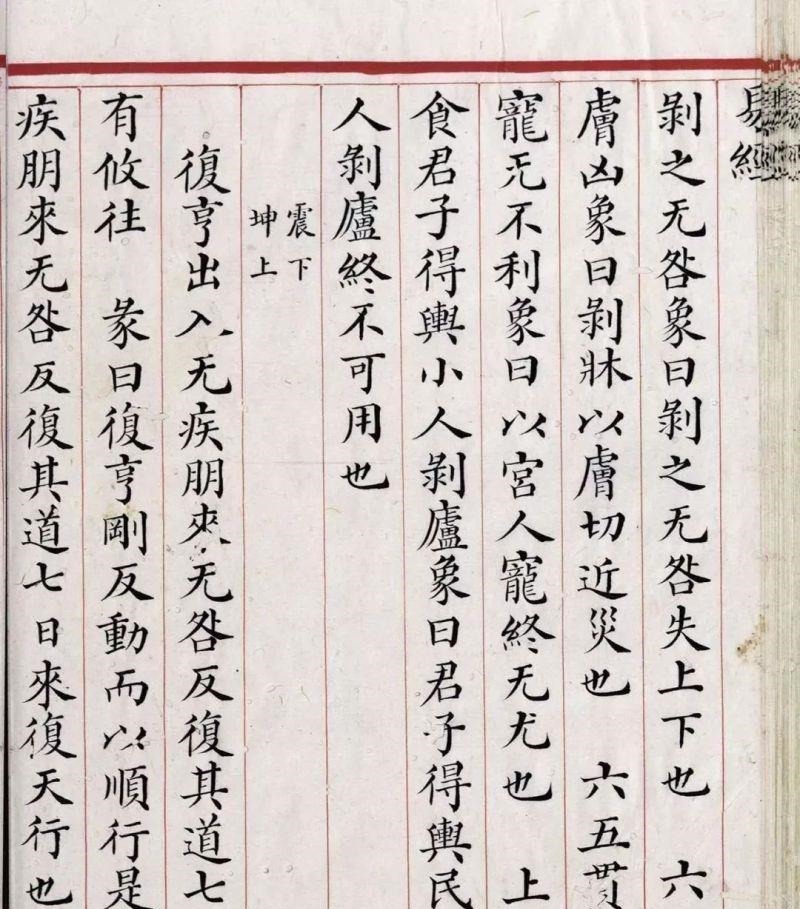 易經
剝之无咎象曰剝之无咎失上下也 六
膚凶象曰剝牀以膚切近災也 六五貫
寵无不利象曰以宮人寵終无尤也 上
食君子得輿小人剝廬象曰君子得輿民
人剝廬終不可用也
震下
坤上
復亨出入无疾朋來无咎反復其道七
有攸往 彖曰復亨剛反動而以順行是
疾朋來无咎反復其道七日來復天行也